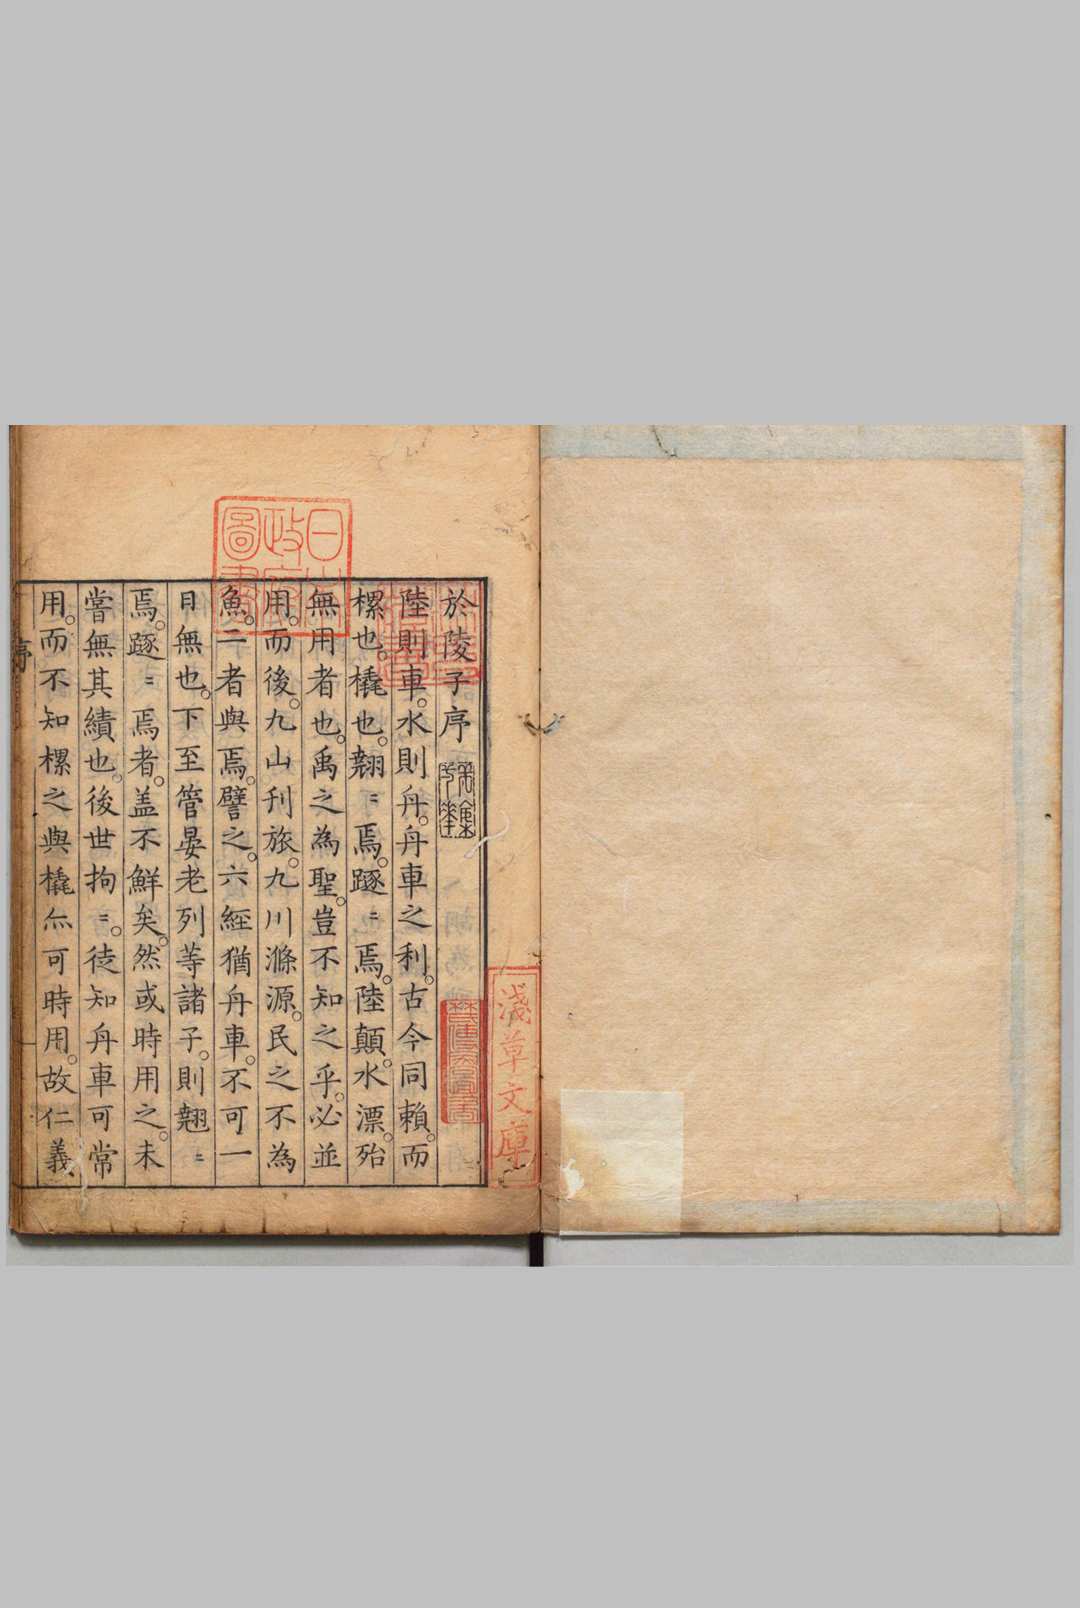 於陵子序
陸則車。水則舟。舟車之利。古今同賴。而
樏也。橇也。翹〻焉。踸〻焉。陸顛。水漂。殆
無用者也。禹之為聖。豈不知之乎。必並
用。而後。九山刋旅。九川滌源。民之不為
魚。二者與焉。譬之。六經猶舟車。不可一
日無也。下至管晏老列等諸子。則翹〻
焉。踸〻焉者。盖不鮮矣。然或時用之。未
嘗無其績也。後世拘〻。徒知舟車可常
用。而不知樏之與橇㣺可時用。故仁義
序
日本
政府
圖書
淺草文庫